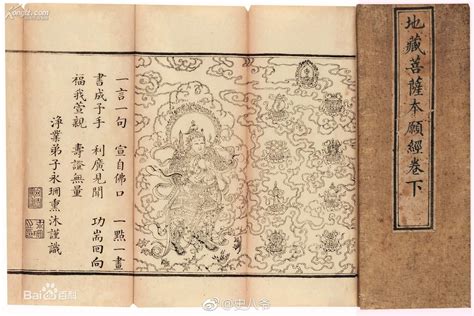 地藏菩薩本願經卷下
一言一句 宣自佛口 一點一畫
書成予手 利廣見聞 功耑回向
福我萱親 壽證無量
淨業弟子永珊熏沐謹識
Bai百科
@史人爷